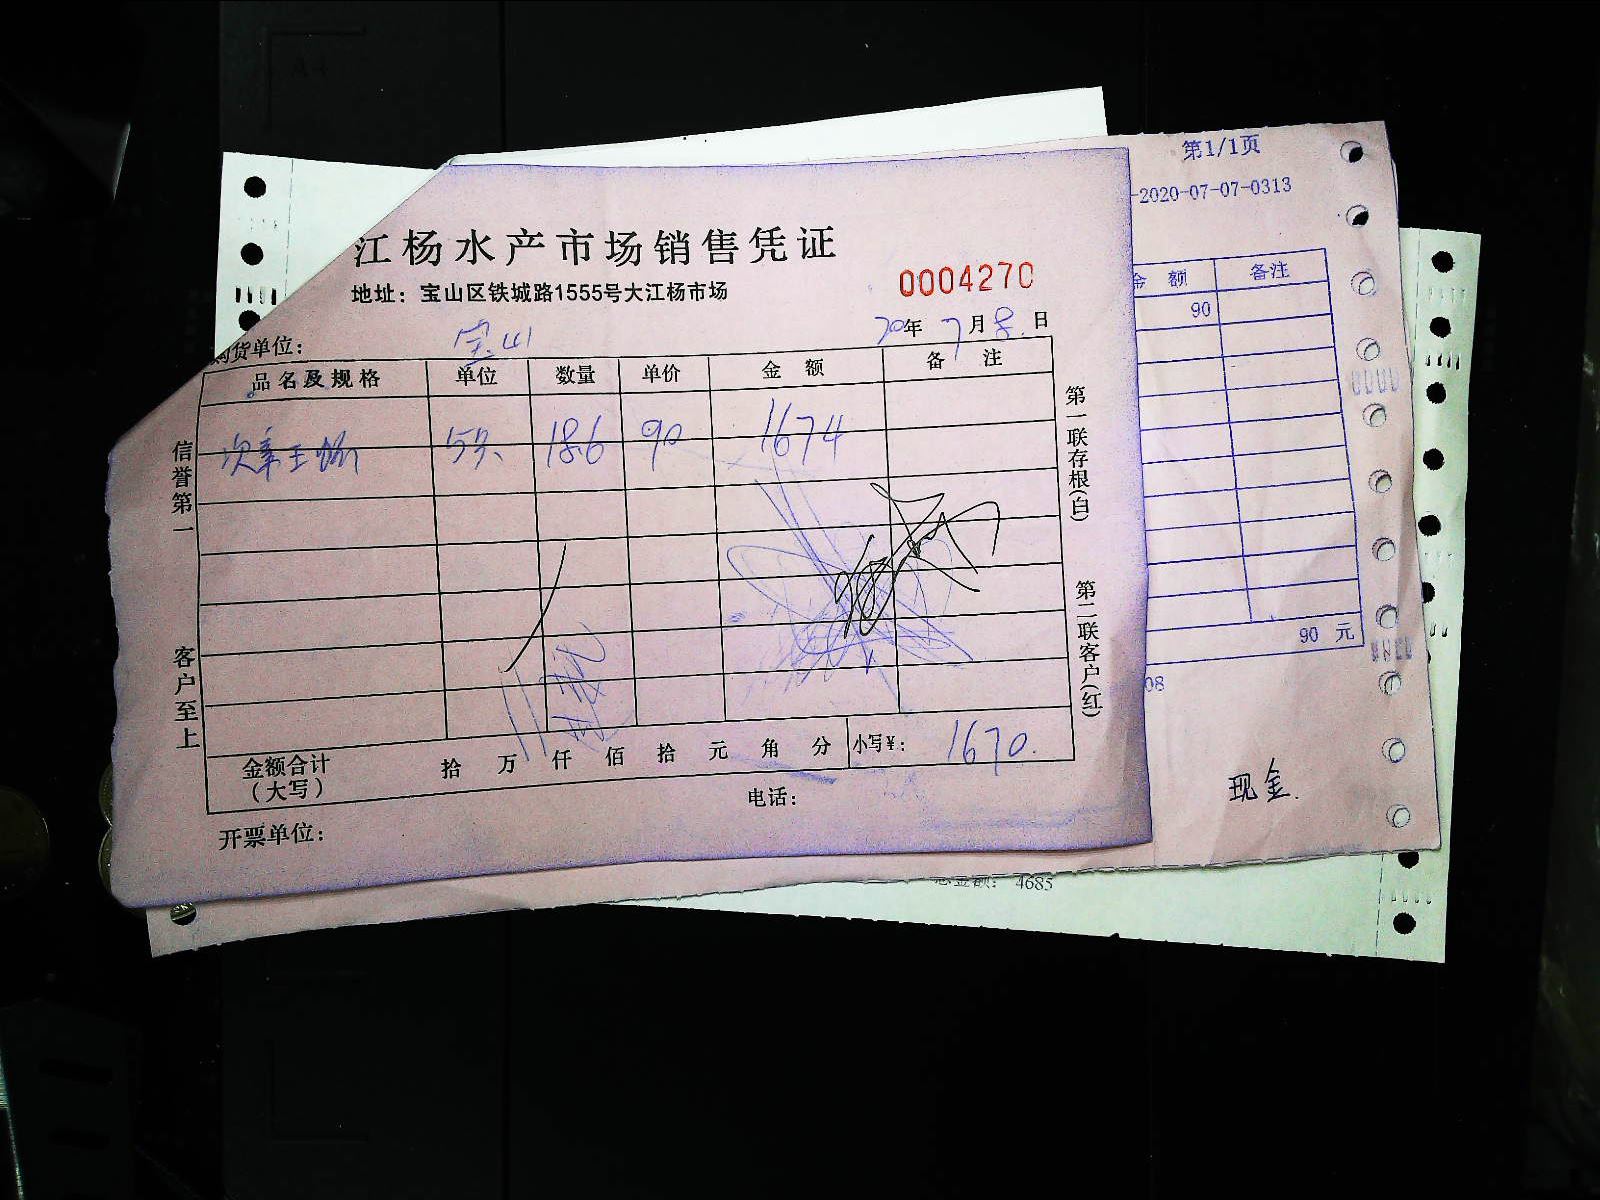 第1/1页
-2020-07-07-0313
江杨水产市场销售凭证
地址：宝山区铁城路1555号大江杨市场
0004270
购货单位： 宝山
20年 7月8日
品名及规格 单位 数量 单价 金额 备注
18.6 90 1674
金额合计（大写） 拾 万 仟 佰 拾 元 角 分 小写¥： 1670.
开票单位：
电话：
信誉第一
客户至上
第一联存根(白)
第二联客户(红)
金额 备注
90
90 元
08
现金.
总金额： 4685